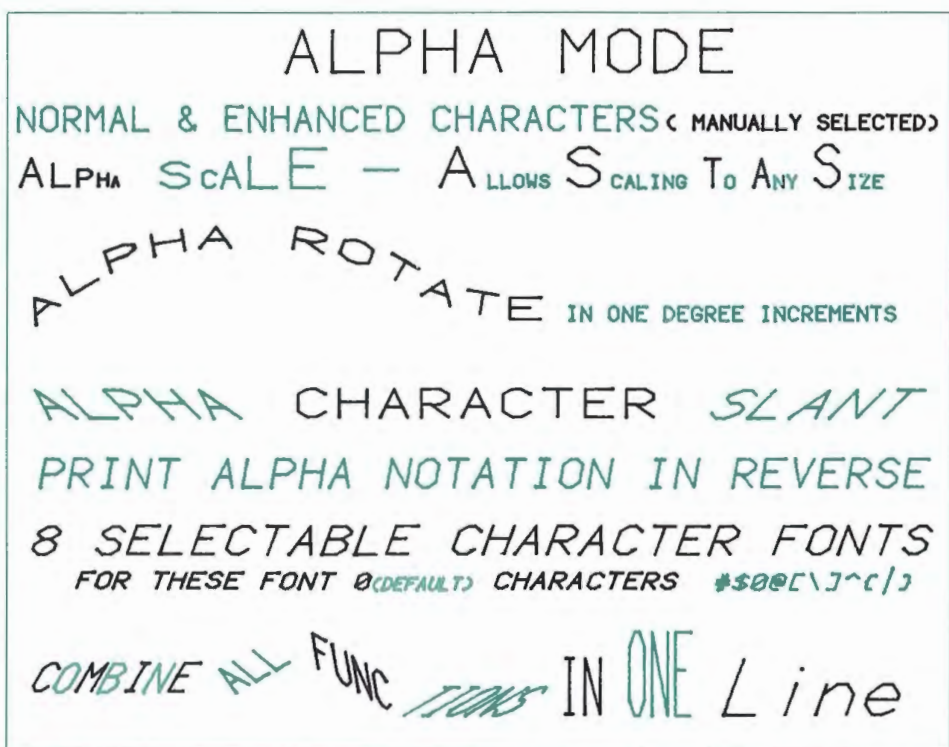 ALPHA MODE
NORMAL & ENHANCED CHARACTERS ( MANUALLY SELECTED)
ALPHA SCALE — ALLOWS SCALING TO ANY SIZE
ALPHA ROTATE IN ONE DEGREE INCREMENTS
ALPHA CHARACTER SLANT
PRINT ALPHA NOTATION IN REVERSE
8 SELECTABLE CHARACTER FONTS
FOR THESE FONT 0(DEFAULT) CHARACTERS #$0@[\]^{/}
COMBINE ALL FUNC TIONS IN ONE Line